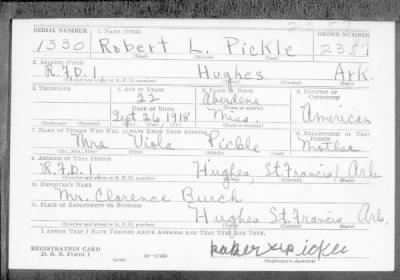 SERIAL NUMBER 1. NAME (Print) ORDER NUMBER
1330 Robert L. Pickle 2357
2. ADDRESS (Print)
R.F.D. 1 Hughes Ark.
3. TELEPHONE 4. AGE IN YEARS 5. PLACE OF BIRTH 6. COUNTRY OF CITIZENSHIP
22 Aberdene
DATE OF BIRTH
Sept 26 1918 Miss. American
7. NAME OF PERSON WHO WILL ALWAYS KNOW YOUR ADDRESS 8. RELATIONSHIP OF THAT PERSON
Mrs Viola Pickle Mother
9. ADDRESS OF THAT PERSON
R.F.D. 1 Hughes, St. Francis, Ark
10. EMPLOYER'S NAME
Mr. Clarence Burch
11. PLACE OF EMPLOYMENT OR BUSINESS
Hughes St. Francis Ark.
I AFFIRM THAT I HAVE VERIFIED ABOVE ANSWERS AND THAT THEY ARE TRUE.
REGISTRATION CARD
D. S. S. FORM 1
(Registrant's signature)